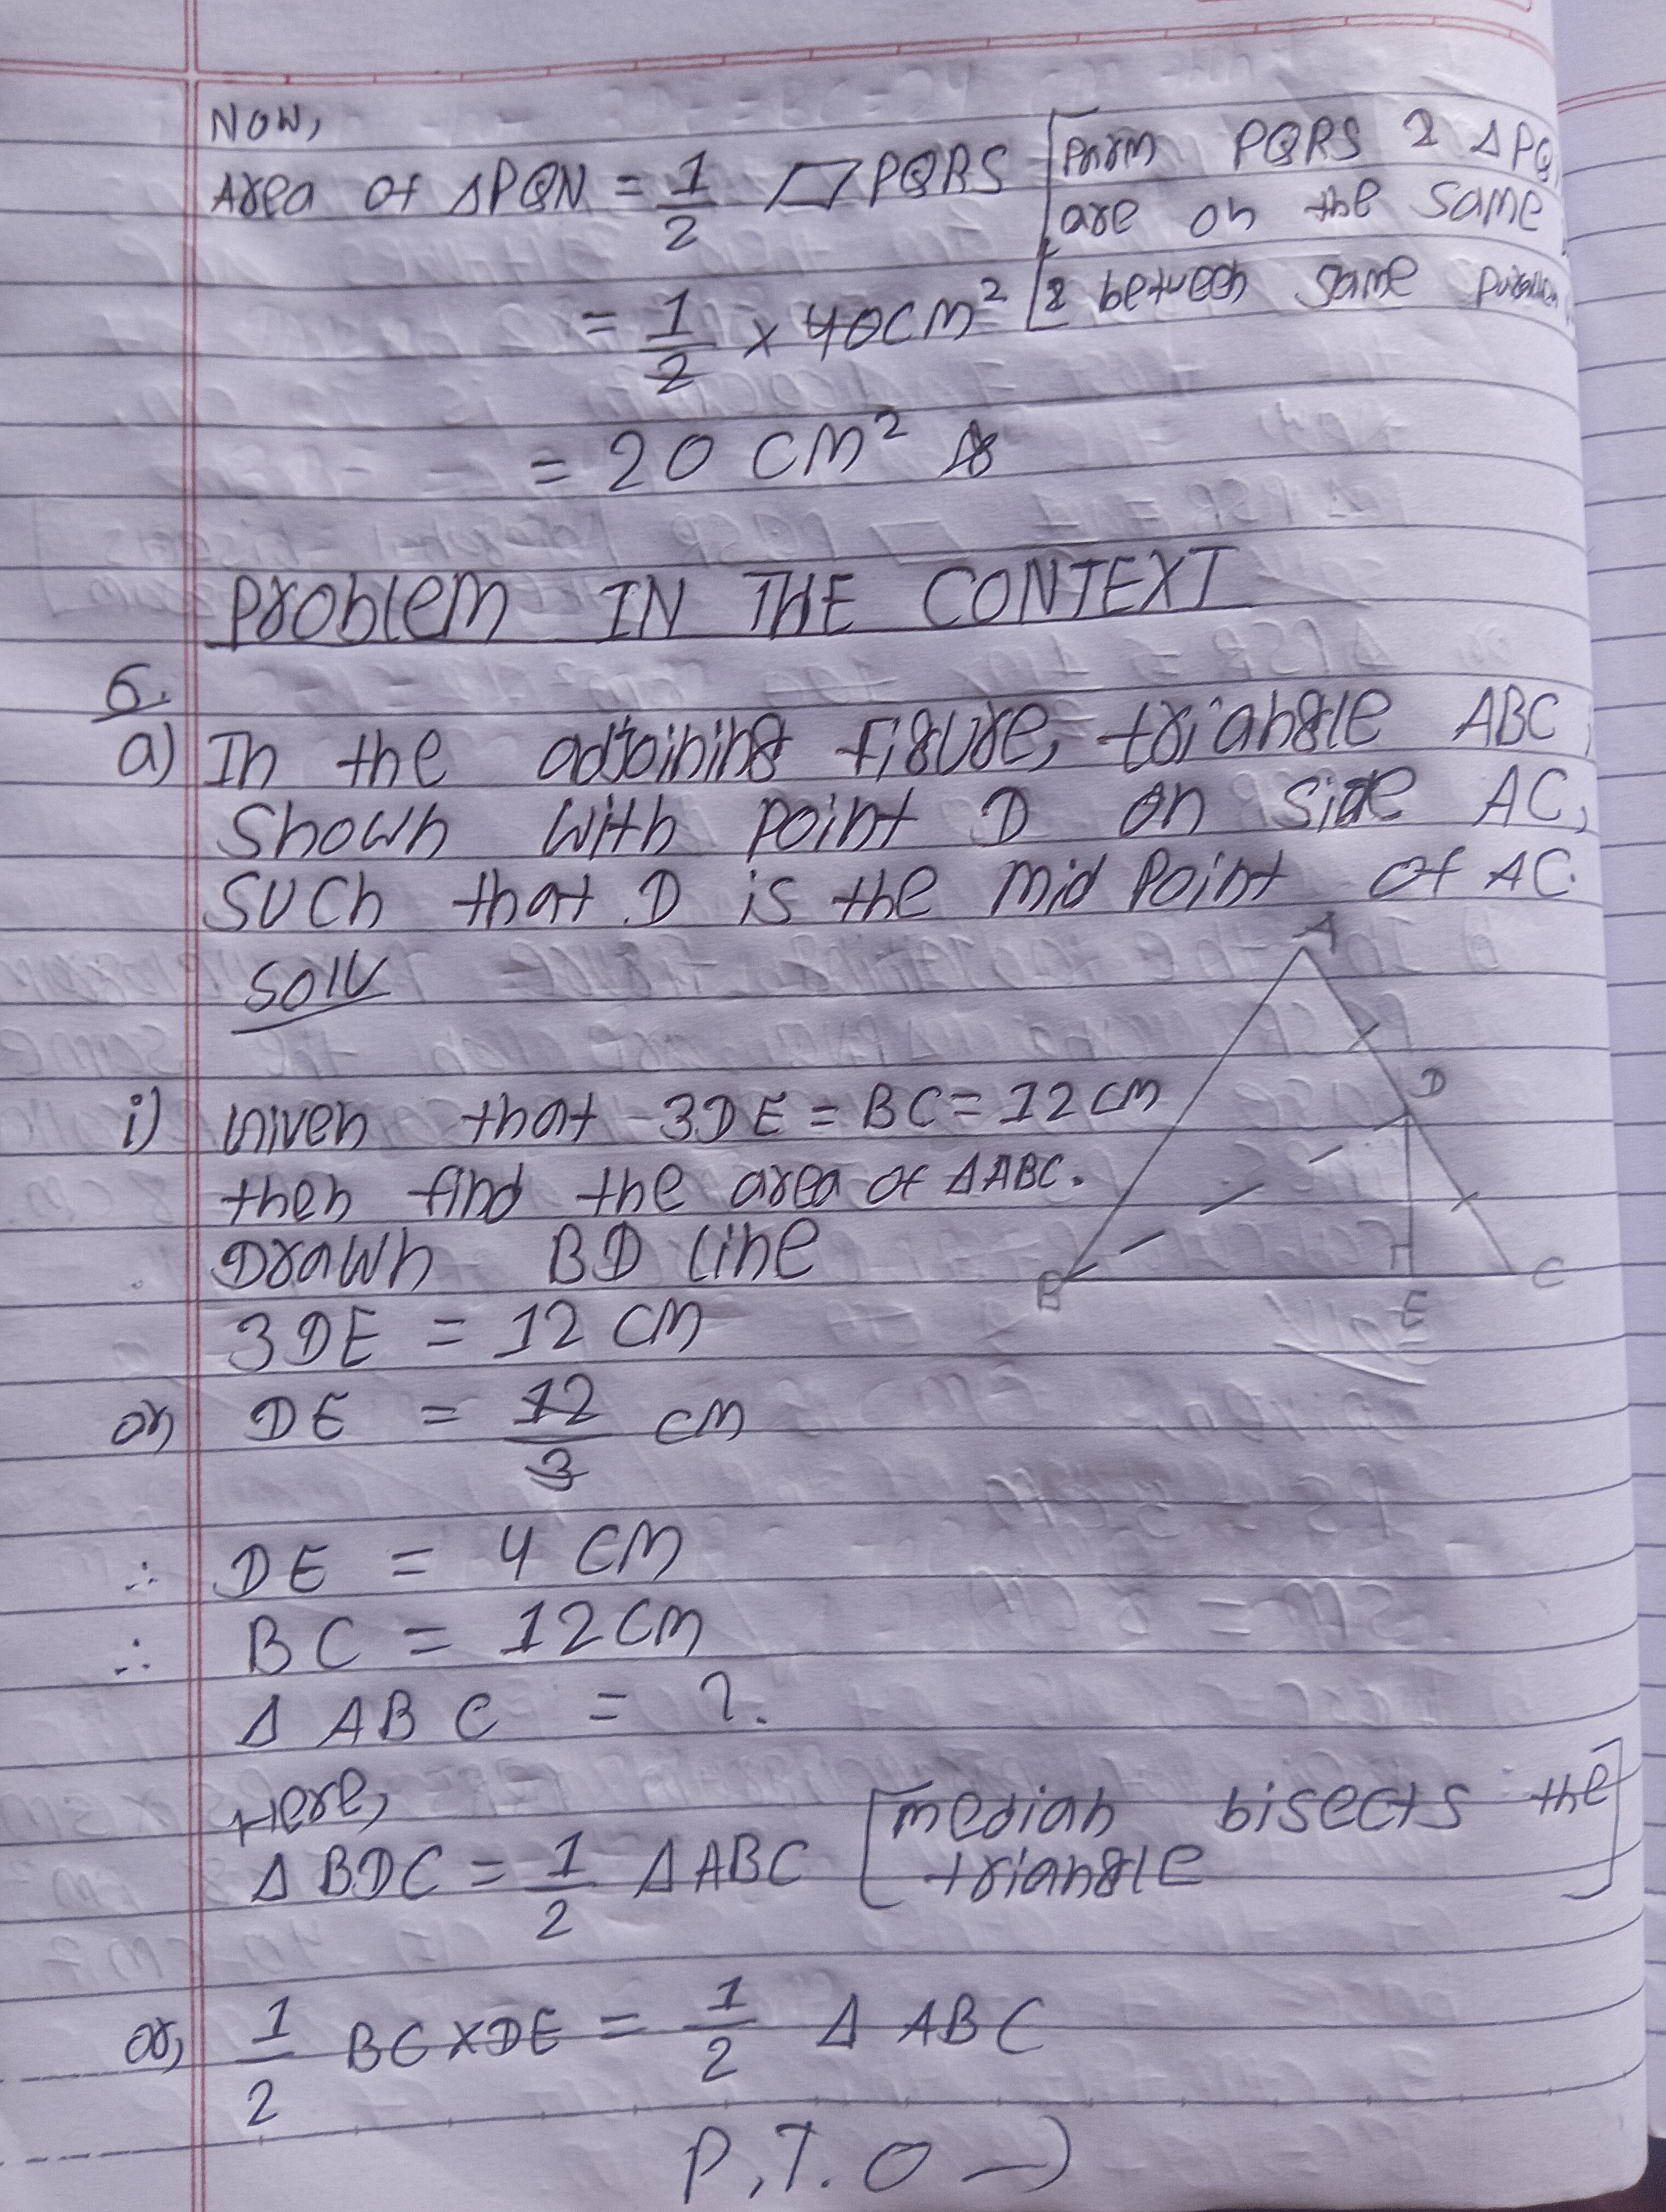 Now,
Area of ΔPQN = 1/2 ▱ PQRS [Parm PQRS & ΔPQ
are on the same
= 1/2 × 40cm² & between same
= 20 cm²
Problem IN THE CONTEXT
6.
a) In the adjoining figure, triangle ABC,
Shown with point D on side AC,
such that D is the mid point of AC.
Solⁿ
A
i) Given that 3DE = BC = 12 cm
D
then find the area of ΔABC.
Drawn BD line
B E C
3DE = 12 cm
or, DE = 12/3 cm
∴ DE = 4 cm
∴ BC = 12cm
Δ ABC = ?.
Here,
Δ BDC = 1/2 Δ ABC [median bisects the
triangle]
or, 1/2 BC×DE = 1/2 Δ ABC
P.T.O →